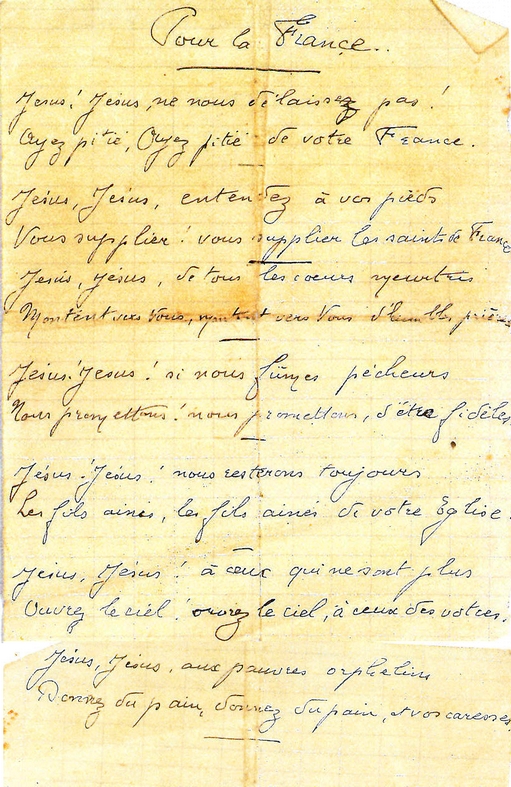 Pour la France..
Jesus! Jésus, ne nous délaissez pas!
Ayez pitié, Ayez pitié de votre France.
Jésus, Jésus, entendez à vos pieds
Vous supplier! vous supplier les saints de France
Jésus, Jésus, de tous les coeurs meurtris
Montent vers Vous, montent vers Vous d'humbles prières
Jésus! Jesus! si nous fûmes pécheurs
Nous promettons! nous promettons, d'être fidèles
Jésus! Jésus! nous resterons toujours
Les fils ainés, les fils ainés de votre Eglise.
Jésus, Jésus! à ceux qui ne sont plus
Ouvrez le ciel! ouvrez le ciel, à ceux des votres!
Jésus, Jésus, aux pauvres orphelins
Donnez du pain, donnez du pain, et vos caresses